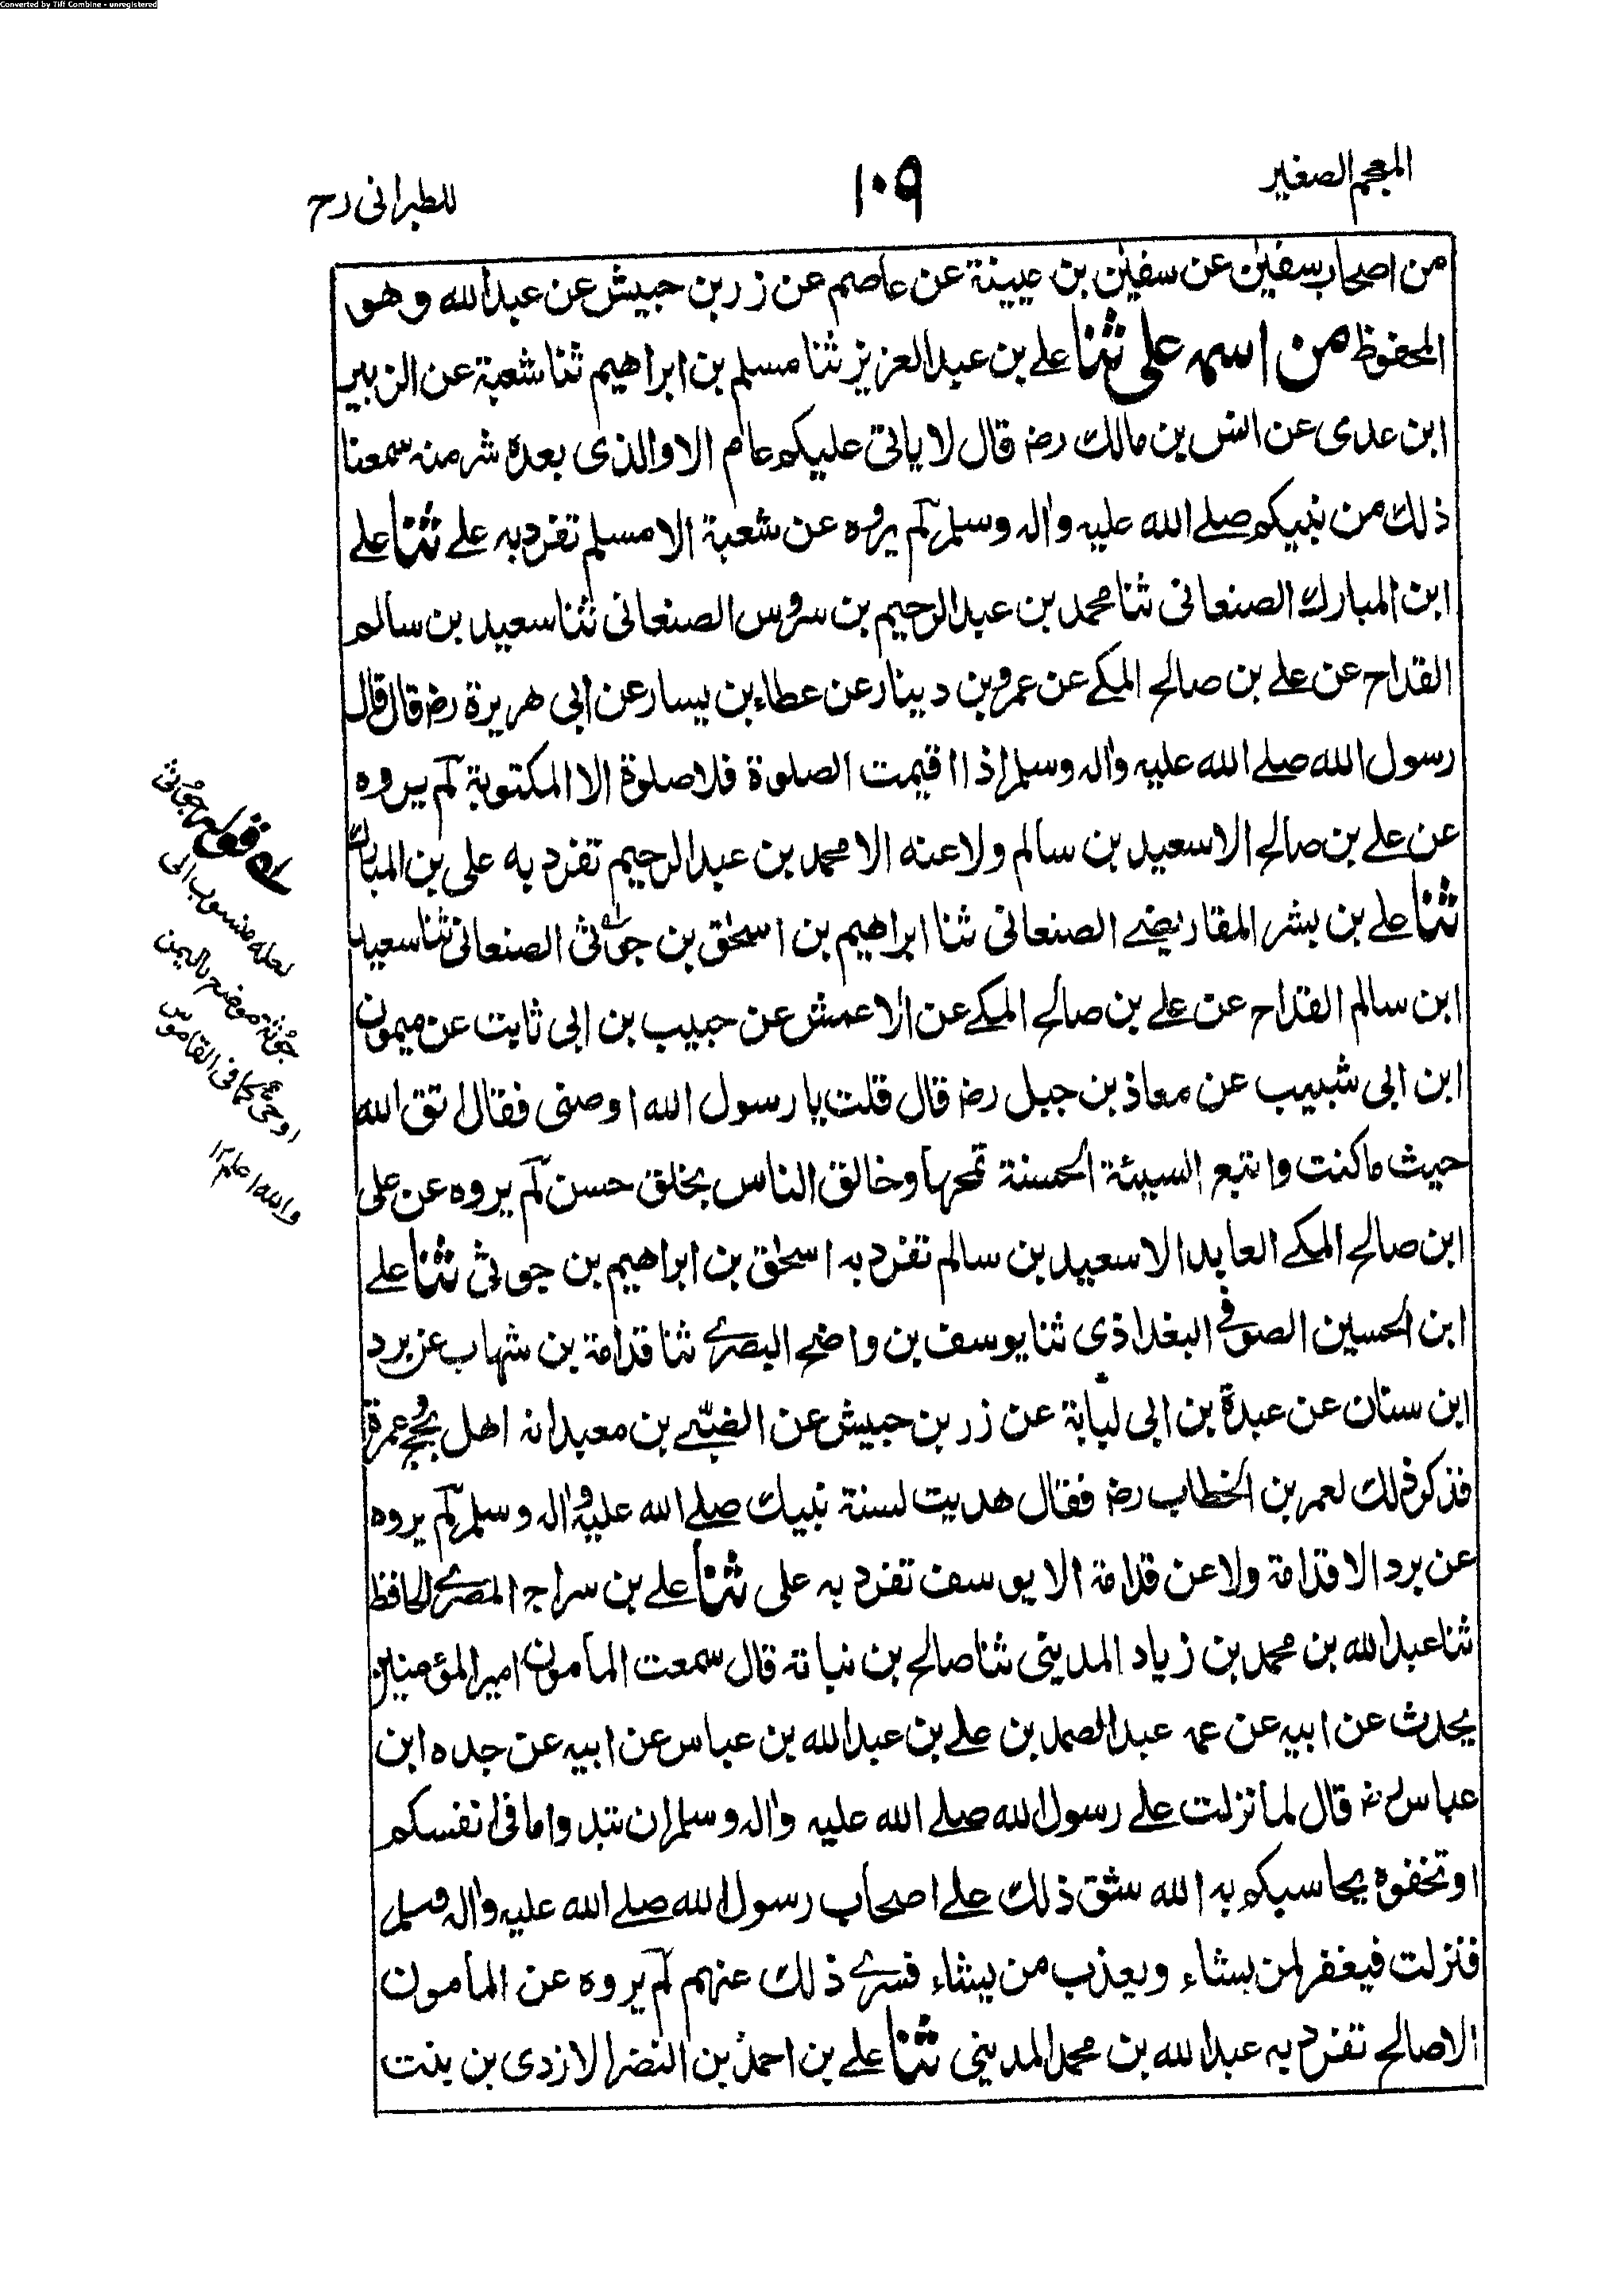 Converted by Tiff Combine - unregistered
المعجم الصغير
١٠٩
للطبرانی رح
من اصحاب سفين عن سفين بن عيينة عن عاصم عن زر بن حبيش عن عبد الله وهو
المحفوظ من اسمه على ثنا علے بن عبد العزيز ثنا مسلم بن ابراهيم ثنا شعبة عن الزبير
ابن عدى عن انس بن مالك رض قال لا ياتى عليكم عام الا والذى بعده شر منه سمعنا
ذلك من نبيكم صلے الله عليه واله وسلم لم يروه عن شعبة الا مسلم تفرد به علے ثنا علے
ابن المبارك الصنعانى ثنا محمد بن عبد الرحيم بن سروس الصنعانى ثنا سعيد بن سالم
القداح عن علے بن صالح المكے عن عمرو بن دينار عن عطاء بن يسار عن ابى هريرة رض قال قال
رسول الله صلے الله عليه واله وسلم اذا اقيمت الصلوة فلا صلوة الا المكتوبة لم يروه
عن علے بن صالح الا سعيد بن سالم ولا عنه الا محمد بن عبد الرحيم تفرد به على بن المبارك
ثنا علے بن بشر المقاريضے الصنعانى ثنا ابراهيم بن اسحٰق بن جوثى الصنعانى ثنا سعيد
ابن سالم القداح عن علے بن صالح المكے عن الاعمش عن حبيب بن ابى ثابت عن ميمون
ابن ابى شبيب عن معاذ بن جبل رض قال قلت يا رسول الله اوصنى فقال اتق الله
حيث ما كنت واتبع السيئة الحسنة تمحها وخالق الناس بخلق حسن لم يروه عن على
ابن صالح المكے العابد الا سعيد بن سالم تفرد به اسحٰق بن ابراهيم بن جوثى ثنا علے
ابن الحسين الصوفى البغداذى ثنا يوسف بن واضح البصرے ثنا قدامة بن شهاب عن برد
ابن سنان عن عبدة بن ابى لبابة عن زر بن حبيش عن الضبّے بن معبد انه اهل بحج وعمرة
فذكر ذلك لعمر بن الخطاب رض فقال هديت لسنة نبيك صلے الله عليه واله وسلم لم يروه
عن برد الا قدامة ولا عن قدامة الا يوسف تفرد به على ثنا علے بن سراج المصرے الحافظ
ثنا عبد الله بن محمد بن زياد المدينى ثنا صالح بن نباتة قال سمعت المأمون امير المؤمنين
يحدث عن ابيه عن عمه عبد الصمد بن علے بن عبد الله بن عباس عن ابيه عن جده ابن
عباس رض قال لما نزلت علے رسول الله صلے الله عليه واله وسلم ان تبدوا ما فى انفسكم
او تخفوه يحاسبكم به الله شق ذلك علے اصحاب رسول الله صلے الله عليه واله وسلم
فنزلت فيغفر لمن يشاء ويعذب من يشاء فسرے ذلك عنهم لم يروه عن المأمون
الا صالح تفرد به عبد الله بن محمد المدينى ثنا علے بن احمد بن النضر الازدى بن بنت
قوله جُوثى
لعله منسوب الى
جُوثة موضع باليمن
او حى كما فى القاموس
والله اعلم ١٢